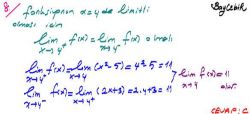 8) fonksiyonun x=4 de limitli
BayÇebir
olması için
lim x→4⁺ f(x) = lim x→4⁻ f(x) olmalı
lim x→4⁺ f(x) = lim x→4 (x² - 5) = 4² - 5 = 11
lim x→4⁻ f(x) = lim x→4⁺ (2x+3) = 2.4+3 = 11
lim x→4 f(x) = 11 olur.
CEVAP: C